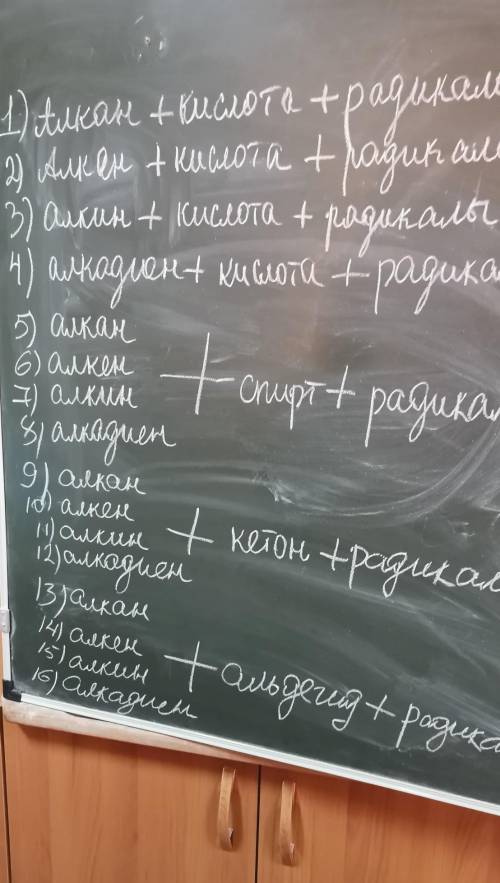 1) Алкан + кислота + радикалы
2) Алкен + кислота + радикалы
3) алкин + кислота + радикалы
4) алкадиен + кислота + радикал
5) алкан
6) алкен
7) алкин
8) алкадиен
+ спирт + радикал
9) алкан
10) алкен
11) алкин
12) алкадиен
+ кетон + радикал
13) алкан
14) алкен
15) алкин
16) алкадиен
+ альдегид + радика